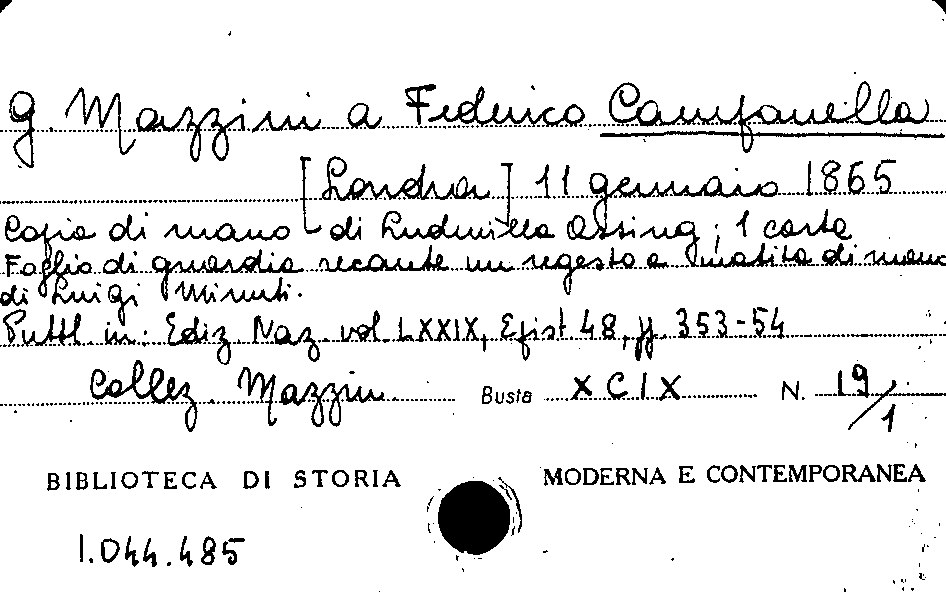 G. Mazzini a Federico Campanella
[Londra] 11 gennaio 1865
Copia di mano di Ludmilla Assing; 1 carta
Foglio di guardia recante un regesto a matita di mano
di Luigi Minuti.
Pubbl. in: Ediz. Naz. vol. LXXIX, Epist. 48, pp. 353-54
Collez. Mazzini Busta XCIX N. 19/1
BIBLIOTECA DI STORIA MODERNA E CONTEMPORANEA
1.044.485